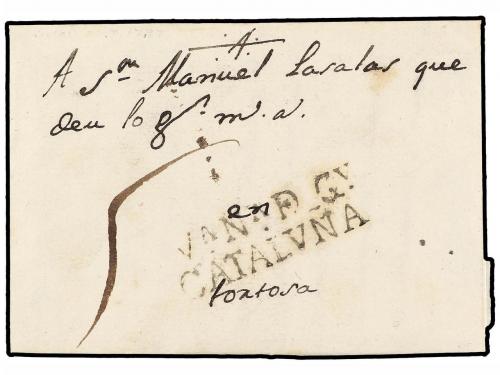 A
A Sor. Manuel Lasalas que
deu lo gt. m. a.
en
CATALVÑA
tortosa